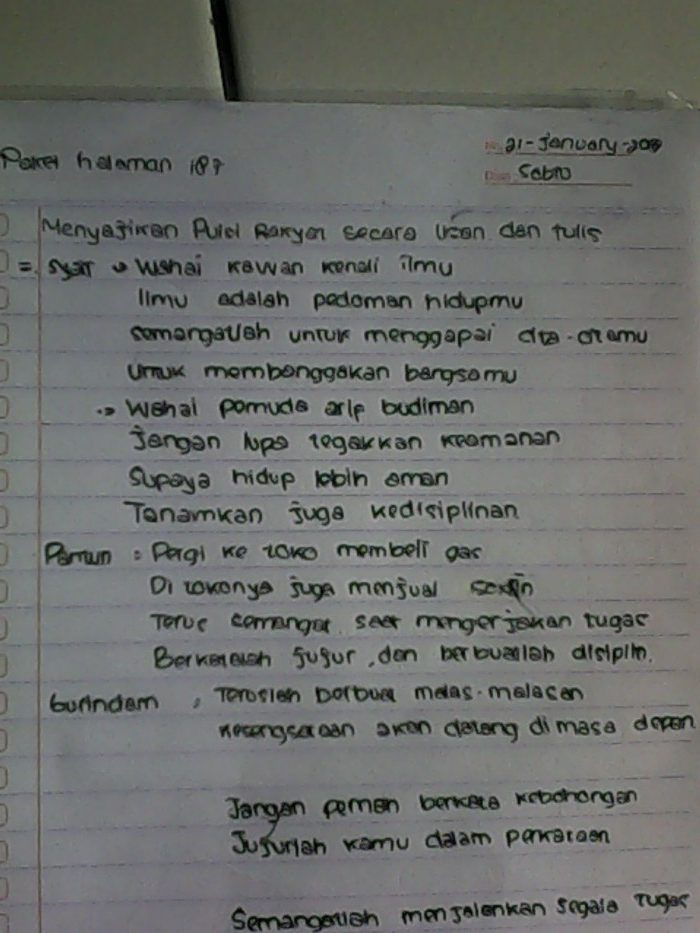 Paket halaman 187
No. 21-January-20
Date Sabtu
Menyajikan Puisi Rakyat secara lisan dan tulis
= Syair → Wahai kawan kenali ilmu
Ilmu adalah pedoman hidupmu
semangatlah untuk menggapai cita-citamu
untuk membanggakan bangsamu
→ Wahai pemuda arip budiman
Jangan lupa tegakkan keamanan
Supaya hidup lebih aman
Tanamkan juga kedisiplinan
Pantun : Pergi ke toko membeli gas
Di tokonya juga menjual
Terus semangat saat mengerjakan tugas
Berkatalah jujur, dan berbuatlah disiplin.
Gurindam : Teruslah berbuat malas-malasan
Kesengsaraan akan datang di masa depan
Jangan pernah berkata kebohongan
Jujurlah kamu dalam perkataan
Semangatlah menjalankan segala tugas